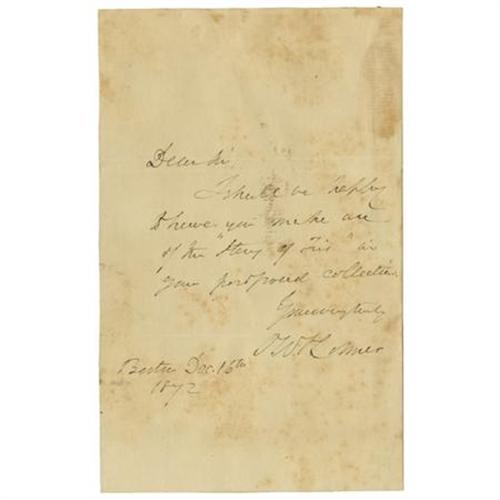 Dear Sir,
I shall be happy
to have you make use
of the "Story of Iris" in
your proposed collection.
Yours very truly
O W Holmes
Boston Dec. 16th
1872